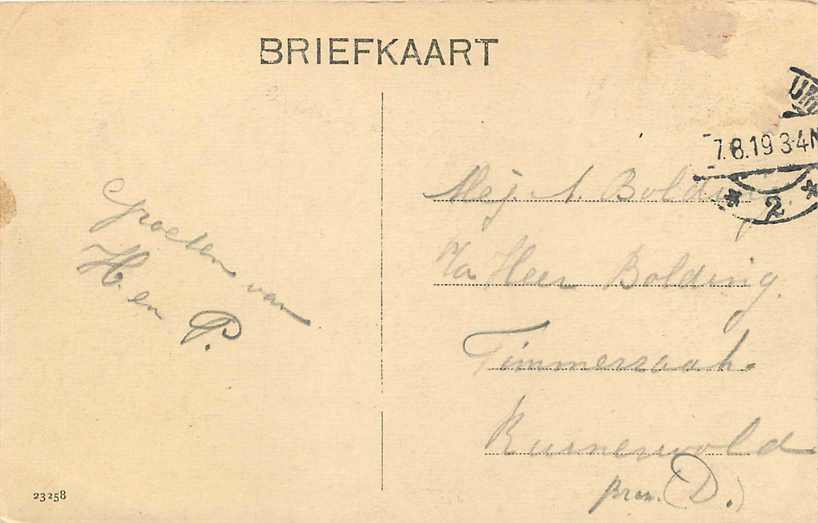 BRIEFKAART
7.8.19 3-4N
2
Groeten van
H. en P.
Mej. A. Bolding
p/a Heer Bolding.
Timmerraah.
Ruinerwold
prov. (D.)
23258